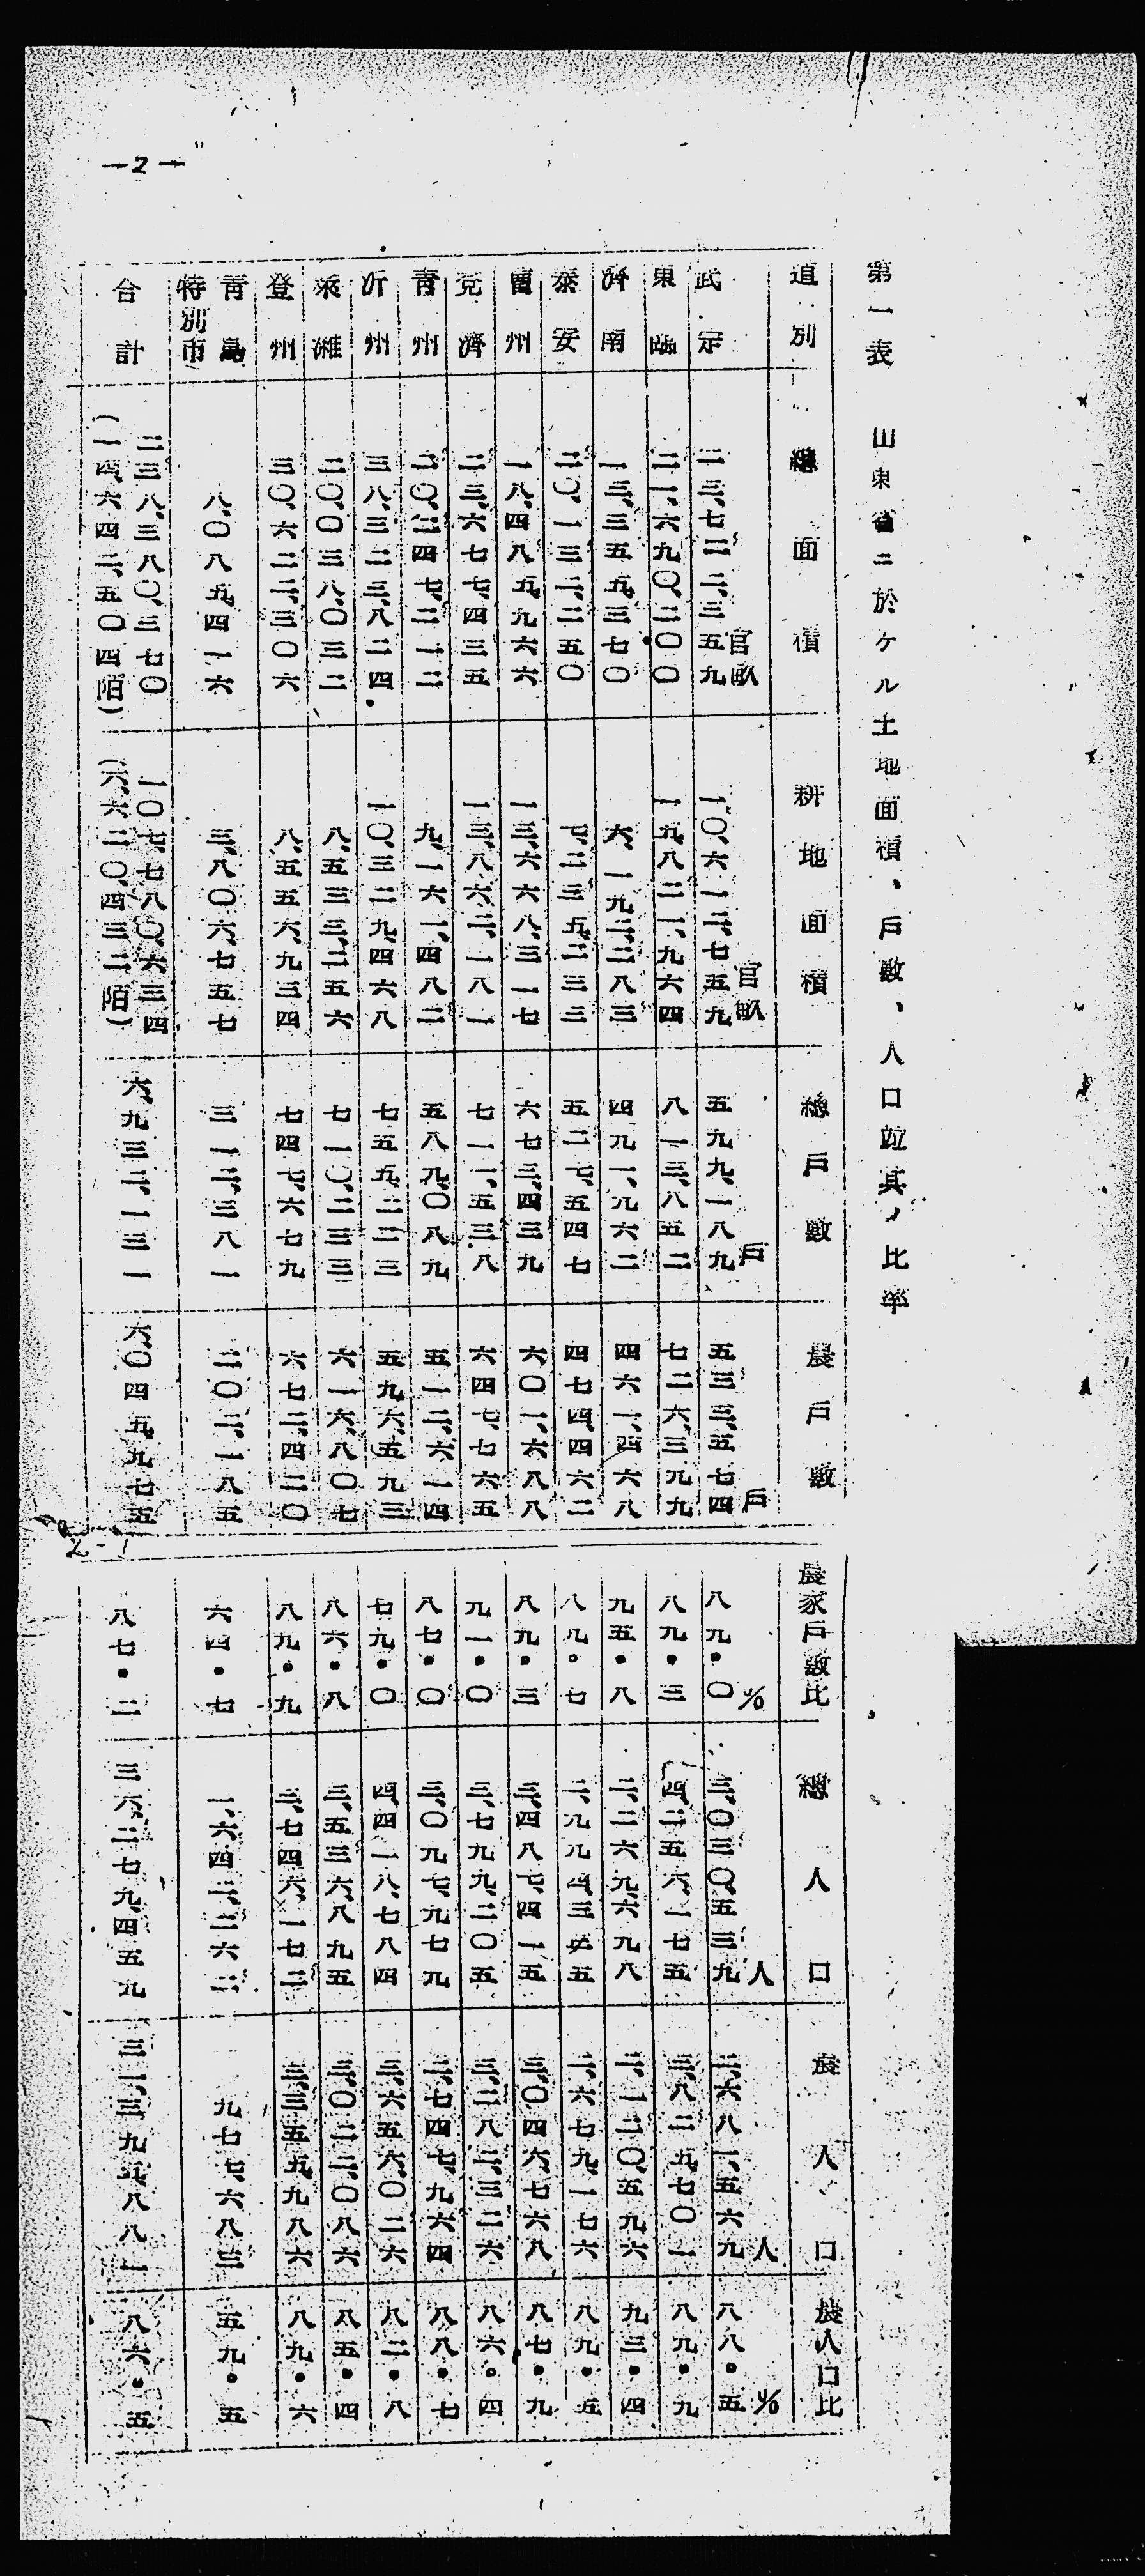 第一表 山東省ニ於ケル土地面積、戶數、人口竝其ノ比率
道別 總面積 耕地面積 總戶數 農戶數 農家戶數比 總人口 農人口 農人口比
官畝 官畝 戶 戶 % 人 人 %
武定 二三,七二二,三五九 一〇,六一二,七五九 五九九,一八九 五三三,五七四 八九・〇 三,〇三〇,五三九 二,六八一,五六九 八八・五
東臨 二一,六九〇,二〇〇 一九,八二一,九六四 八一三,八五二 七二六,三九九 八九・三 四,二五六,一七五 三,八二九,七〇一 八九・九
濟南 一三,三五九,三七〇 六,一九二,二八三 四九一,九六二 四六一,四六八 九五・八 二,二六九,六九八 二,一二〇,五九六 九三・四
泰安 二〇,一三二,二五〇 七,二三五,二三三 五二七,五四七 四七四,四六二 八九・七 二,九九四,三五五 二,六七九,一七六 八九・五
曹州 一八,四八五,九六六 一三,六六八,三一七 六七三,四三九 六〇一,六八八 八九・三 三,四八七,四一五 三,〇四六,七六八 八七・九
兗濟 二三,六七七,四三五 一三,八六二,一八一 七一一,五三八 六四七,七六五 九一・〇 三,七九九,二〇五 三,二八二,三二六 八六・四
青州 二〇,二四七,二一二 九,一六一,四八二 五八九,〇八九 五一二,六一四 八七・〇 三,〇九七,九七九 二,七四七,九六四 八八・七
沂州 三八,三二三,八二四 一〇,三二九,四六八 七五五,二二三 五九六,五九三 七九・〇 四,四一八,七八四 三,六五六,〇二六 八二・八
萊濰 二〇,〇三八,〇三二 八,五三三,二五六 七一〇,二三三 六一六,八〇七 八六・八 三,五三六,八九五 三,〇二二,〇八六 八五・四
登州 三〇,六二二,三〇六 八,五五六,九三四 七四七,六七九 六七二,四二〇 八九・九 三,七四六,一七二 三,三五九,九八六 八九・六
青島特別市 八,〇八五,四一六 三,八〇六,七五七 三一二,三八一 二〇二,一八五 六四・七 一,六四二,二六二 九七七,六八三 五九・五
合計 二三八,三八〇,三七〇 (一四,六四二,五〇四陌) 一〇七,七八〇,六三四 (六,六二〇,四三二陌) 六,九三二,一三一 六,〇四五,九七五 八七・二 三六,二七九,四五九 三一,三九五,八八一 八六・五
—2—
2-1